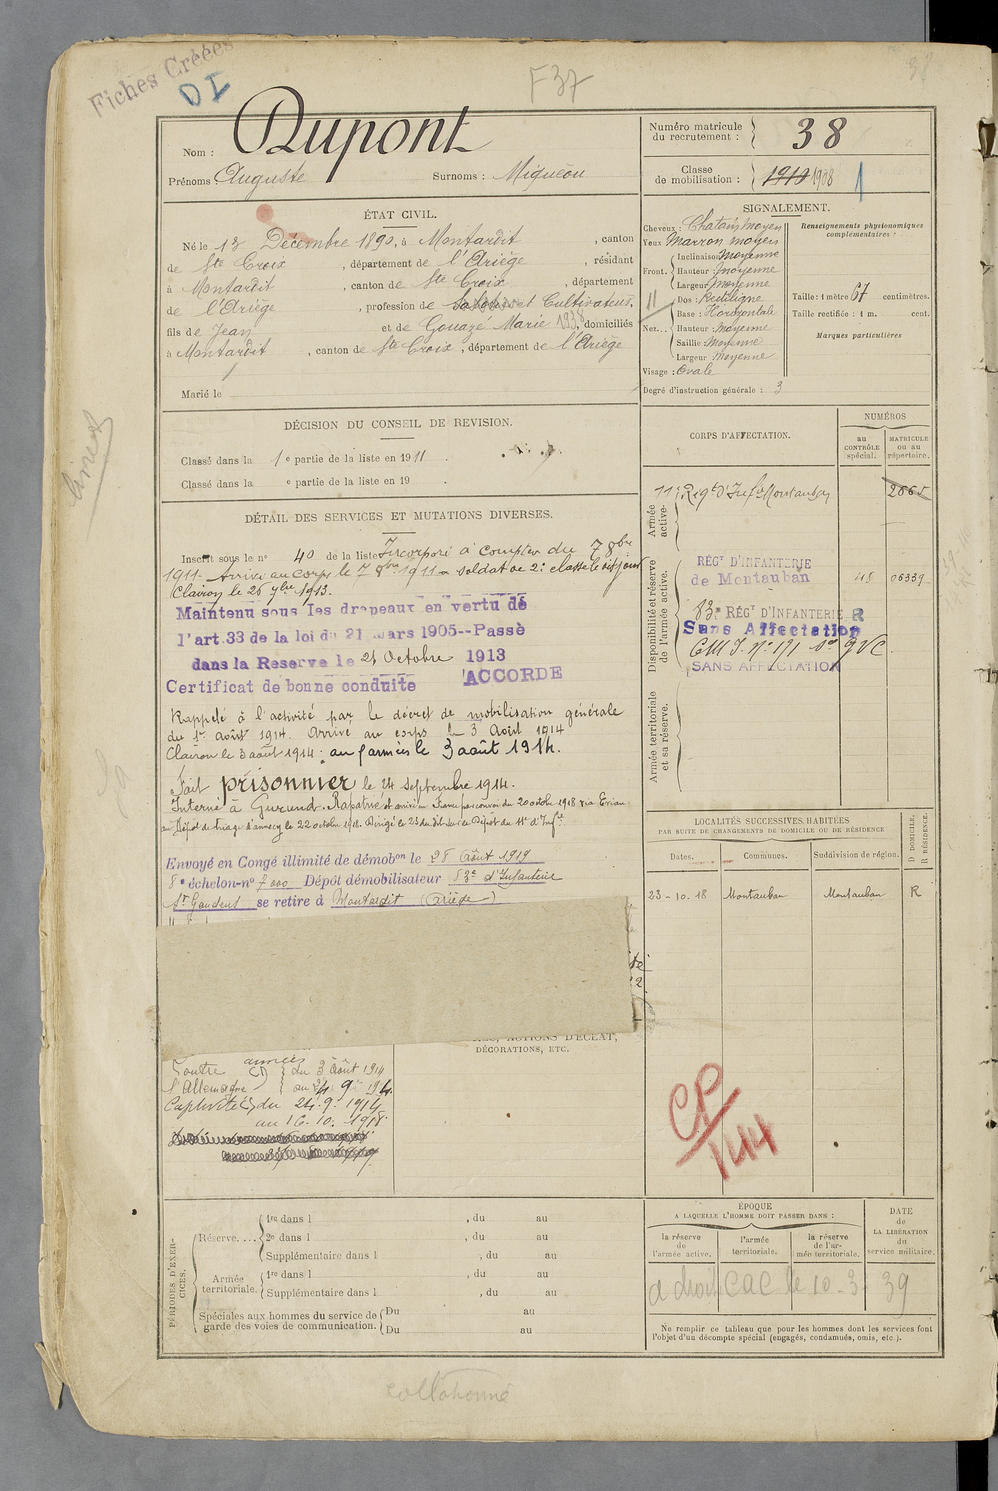 Fiches Créées
DI
F37
Nom : Dupont
Prénoms : Auguste Surnoms : Miqueou
Numéro matricule du recrutement : 38
Classe de mobilisation : 1910 1908 1
ÉTAT CIVIL.
Né le 13 Décembre 1890, à Montardit, canton
de Ste Croix, département de l'Ariège, résidant
à Montardit, canton de Ste Croix, département
de l'Ariège, profession de et Cultivateur,
fils de Jean et de Gouaze Marie 1938, domiciliés
à Montardit, canton de Ste Croix, département de l'Ariège
Marié le
SIGNALEMENT.
Cheveux : Chatain moyen
Yeux Marron moyen
Front. Inclinaison Moyenne
Hauteur : moyenne
Largeur Moyenne
Nez... Dos : Rectiligne
Base : Horizontale
Hauteur : moyenne
Saillie Moyenne
Largeur : Moyenne
Visage : Ovale
Degré d'instruction générale : 3
Renseignements physionomiques complémentaires :
Taille : 1 mètre 67 centimètres.
Taille rectifiée : 1 m. cent.
Marques particulières
DÉCISION DU CONSEIL DE REVISION.
Classé dans la 1e partie de la liste en 1911.
Classé dans la e partie de la liste en 19 .
DÉTAIL DES SERVICES ET MUTATIONS DIVERSES.
Inscrit sous le n° 40 de la liste Incorporé à compter du 7 8bre
1911. Arrivé au corps le 7 8bre 1911 soldat de 2e classe le dit jour
Clairon le 26 7bre 1913.
Maintenu sous les drapeaux en vertu de
l'art.33 de la loi du 21 mars 1905--Passé
dans la Reserve le 21 Octobre 1913
Certificat de bonne conduite ACCORDÉ
Rappelé à l'activité par le décret de mobilisation générale
du 1er Août 1914. Arrivé au corps le 3 Août 1914
Clairon le 3 août 1914. aux armées le 3 août 1914.
Fait prisonnier le 24 Septembre 1914.
Interné à Gmund. Rapatrié et arrivé en France par convoi du 20 octobre 1918 via Evian.
au Dépôt de triage d'Annecy le 22 octobre 1918. Dirigé le 23 du dit sur le Dépôt du 11e d'Infrie
Envoyé en Congé illimité de démobon le 28 Août 1919
8e échelon-n° 7000 Dépôt démobilisateur 83e d'Infanterie
St Gaudens se retire à Montardit (Ariège)
CORPS D'AFFECTATION.
NUMÉROS
au CONTRÔLE spécial.
MATRICULE OU AU répertoire.
Armée active.
11e Regt d'Infie Montauban 2665
Disponibilité et réserve de l'armée active.
RÉGT D'INFANTERIE
de Montauban 48 06339
83e RÉGT D'INFANTERIE R
Sans Affectation
CM I. n° 171 Son GVC
SANS AFFECTATION
Armée territoriale et sa réserve.
LOCALITÉS SUCCESSIVES HABITÉES
PAR SUITE DE CHANGEMENTS DE DOMICILE OU DE RÉSIDENCE
Dates. Communes. Suddivision de région. D DOMICILE, R RÉSIDENCE.
23-10.18 Montauban Montauban R
ACTIONS D'ÉCLAT,
DÉCORATIONS, ETC.
Contre l'Allemagne
armées
du 3 Août 1914
au 24 9 1914.
Captivité du 24.9.1914
au 16.10.1918.
CP/144
PÉRIODES D'EXERCICES.
Réserve.... 1re dans l , du au
2e dans l , du au
Supplémentaire dans l , du au
Armée territoriale. 1re dans l , du au
Supplémentaire dans l , du au
Spéciales aux hommes du service de garde des voies de communication. Du au
Du au
ÉPOQUE
A LAQUELLE L'HOMME DOIT PASSER DANS :
la réserve de l'armée active.
l'armée territoriale.
la réserve de l'armée territoriale.
DATE de LA LIBÉRATION du service militaire.
a droit CAC le 10-3-39
Ne remplir ce tableau que pour les hommes dont les services font
l'objet d'un décompte spécial (engagés, condamnés, omis, etc.).
collationné